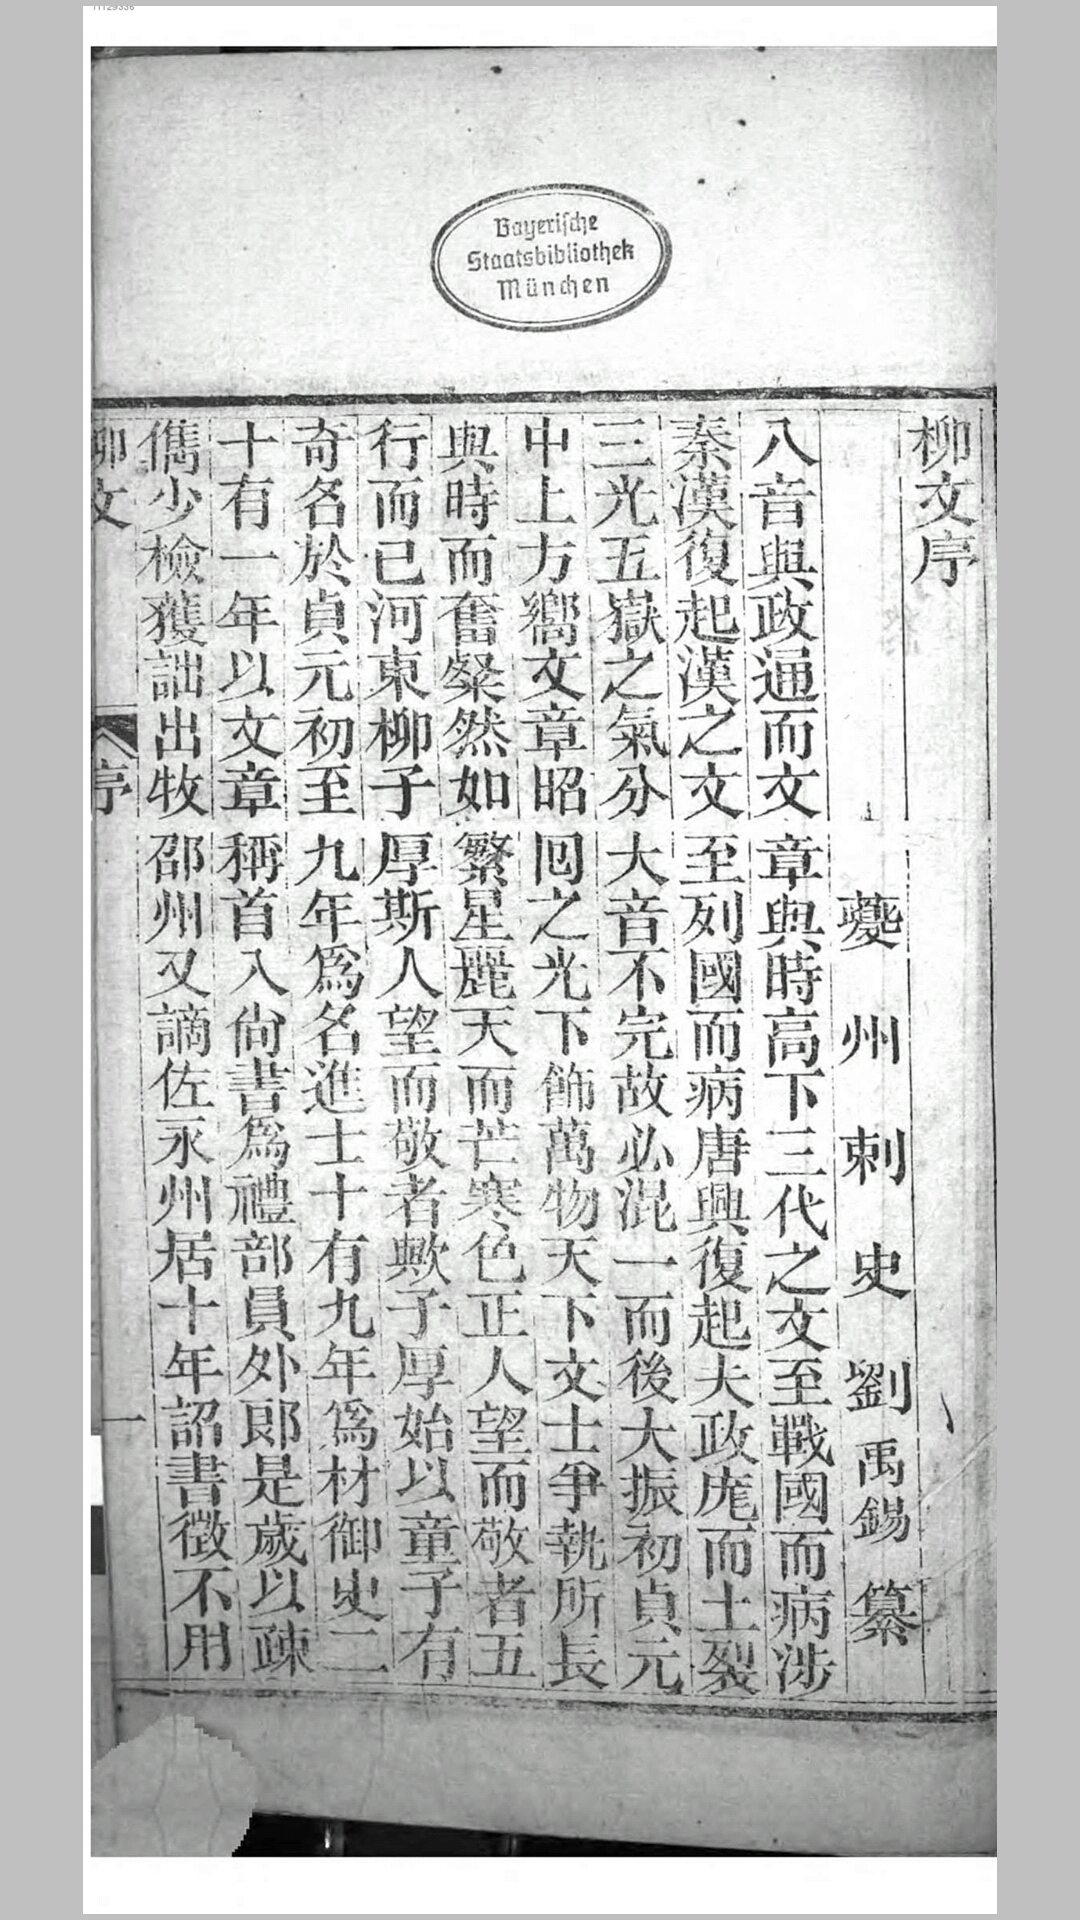 11129336
Bayerische
Staatsbibliothek
München
柳文序
夔州刺史劉禹錫纂
八音與政通而文章與時高下三代之文至戰國而病涉
秦漢復起漢之文至列國而病唐興復起夫政庬而土裂
三光五嶽之氣分大音不完故必混一而後大振初貞元
中上方嚮文章昭囘之光下飾萬物天下文士爭執所長
與時而奮粲然如繁星麗天而芒寒色正人望而敬者五
行而已河東柳子厚斯人望而敬者歟子厚始以童子有
奇名於貞元初至九年爲名進士十有九年爲材御史二
十有一年以文章稱首入尙書爲禮部員外郞是歲以疎
儁少檢獲訕出牧邵州又謫佐永州居十年詔書徵不用
柳文 序 一